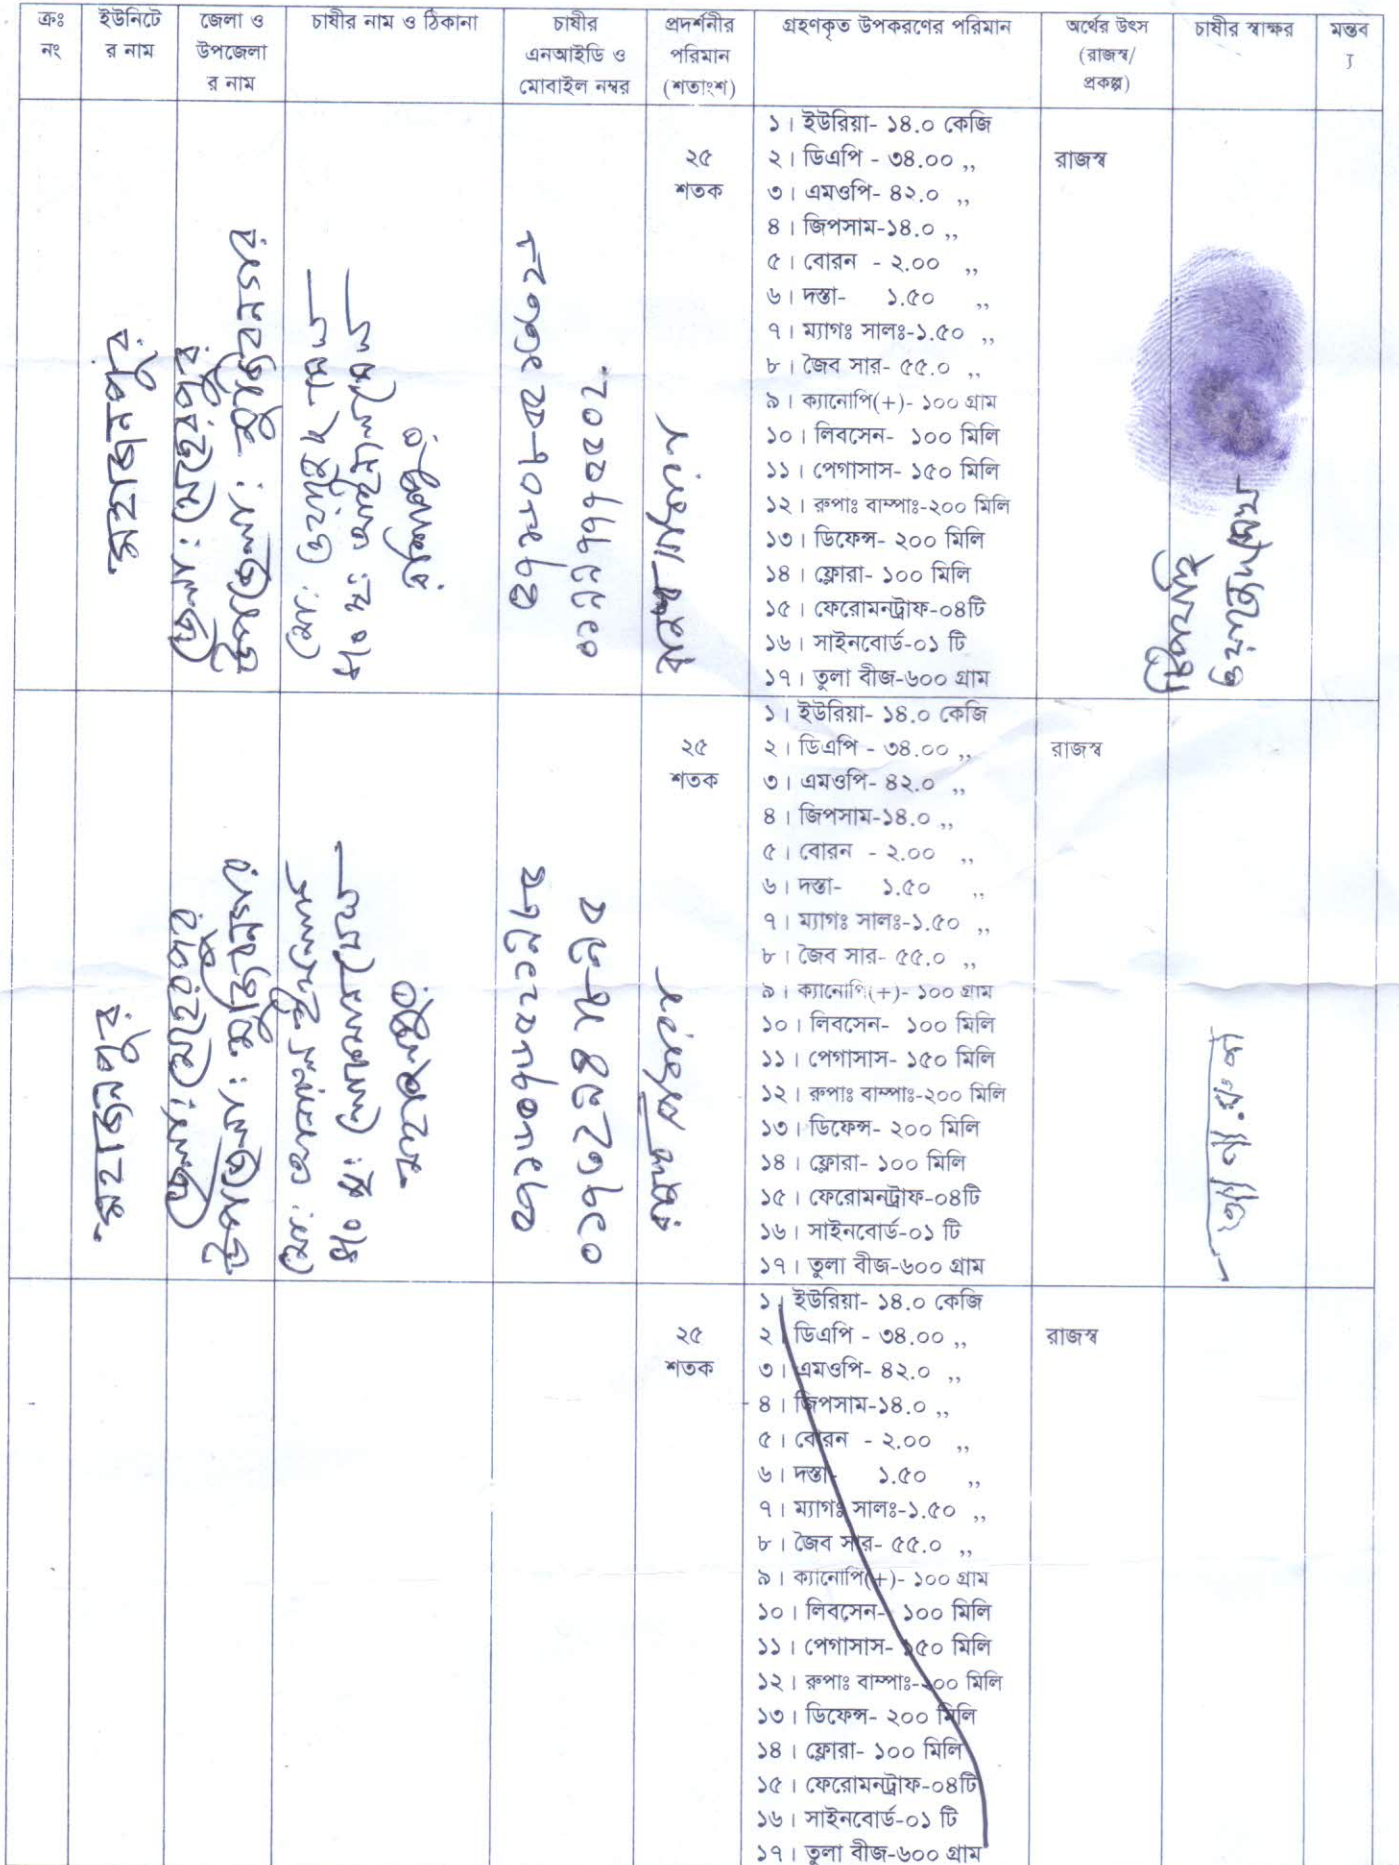 ক্রঃ নং
ইউনিটে
র নাম
জেলা ও
উপজেলা
র নাম
চাষীর নাম ও ঠিকানা
চাষীর
এনআইডি ও
মোবাইল নম্বর
প্রদর্শনীর
পরিমান
(শতাংশ)
গ্রহণকৃত উপকরণের পরিমান
অর্থের উৎস
(রাজস্ব/
প্রকল্প)
চাষীর স্বাক্ষর
মন্তব
্য
মহাজনপুর
জেলা: মেহেরপুর
উপজেলা: মুজিবনগর
২৫
শতক
১। ইউরিয়া- ১৪.০ কেজি
২। ডিএপি - ৩৪.০০ ,,
৩। এমওপি- ৪২.০ ,,
৪। জিপসাম-১৪.০ ,,
৫। বোরন - ২.০০ ,,
৬। দস্তা- ১.৫০ ,,
৭। ম্যাগঃ সালঃ-১.৫০ ,,
৮। জৈব সার- ৫৫.০ ,,
৯। ক্যানোপি(+)- ১০০ গ্রাম
১০। লিবসেন- ১০০ মিলি
১১। পেগাসাস- ১৫০ মিলি
১২। রুপাঃ বাম্পাঃ-২০০ মিলি
১৩। ডিফেন্স- ২০০ মিলি
১৪। ফ্লোরা- ১০০ মিলি
১৫। ফেরোমনট্রাফ-০৪টি
১৬। সাইনবোর্ড-০১ টি
১৭। তুলা বীজ-৬০০ গ্রাম
রাজস্ব
টিপসহি
মহাজনপুর
জেলা: মেহেরপুর
উপজেলা: মুজিবনগর
২৫
শতক
১। ইউরিয়া- ১৪.০ কেজি
২। ডিএপি - ৩৪.০০ ,,
৩। এমওপি- ৪২.০ ,,
৪। জিপসাম-১৪.০ ,,
৫। বোরন - ২.০০ ,,
৬। দস্তা- ১.৫০ ,,
৭। ম্যাগঃ সালঃ-১.৫০ ,,
৮। জৈব সার- ৫৫.০ ,,
৯। ক্যানোপি(+)- ১০০ গ্রাম
১০। লিবসেন- ১০০ মিলি
১১। পেগাসাস- ১৫০ মিলি
১২। রুপাঃ বাম্পাঃ-২০০ মিলি
১৩। ডিফেন্স- ২০০ মিলি
১৪। ফ্লোরা- ১০০ মিলি
১৫। ফেরোমনট্রাফ-০৪টি
১৬। সাইনবোর্ড-০১ টি
১৭। তুলা বীজ-৬০০ গ্রাম
রাজস্ব
২৫
শতক
১। ইউরিয়া- ১৪.০ কেজি
২। ডিএপি - ৩৪.০০ ,,
৩। এমওপি- ৪২.০ ,,
৪। জিপসাম-১৪.০ ,,
৫। বোরন - ২.০০ ,,
৬। দস্তা- ১.৫০ ,,
৭। ম্যাগঃ সালঃ-১.৫০ ,,
৮। জৈব সার- ৫৫.০ ,,
৯। ক্যানোপি(+)- ১০০ গ্রাম
১০। লিবসেন- ১০০ মিলি
১১। পেগাসাস- ১৫০ মিলি
১২। রুপাঃ বাম্পাঃ-২০০ মিলি
১৩। ডিফেন্স- ২০০ মিলি
১৪। ফ্লোরা- ১০০ মিলি
১৫। ফেরোমনট্রাফ-০৪টি
১৬। সাইনবোর্ড-০১ টি
১৭। তুলা বীজ-৬০০ গ্রাম
রাজস্ব